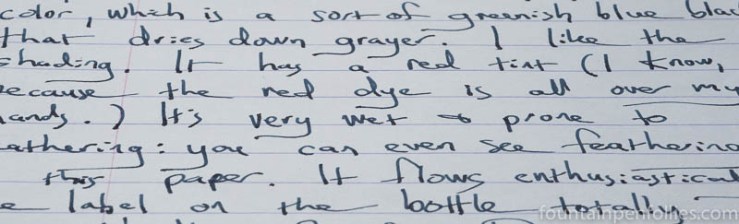 color, which is a sort of greenish blue blac
that dries down grayer. I like the
shading. It has a red tint (I know,
because the red dye is all over my
hands.) It's very wet & prone to
eathering: you can even see feathering
this paper. It flows enthusiastical
e label on the bottle totally
fountainpenfollies.com